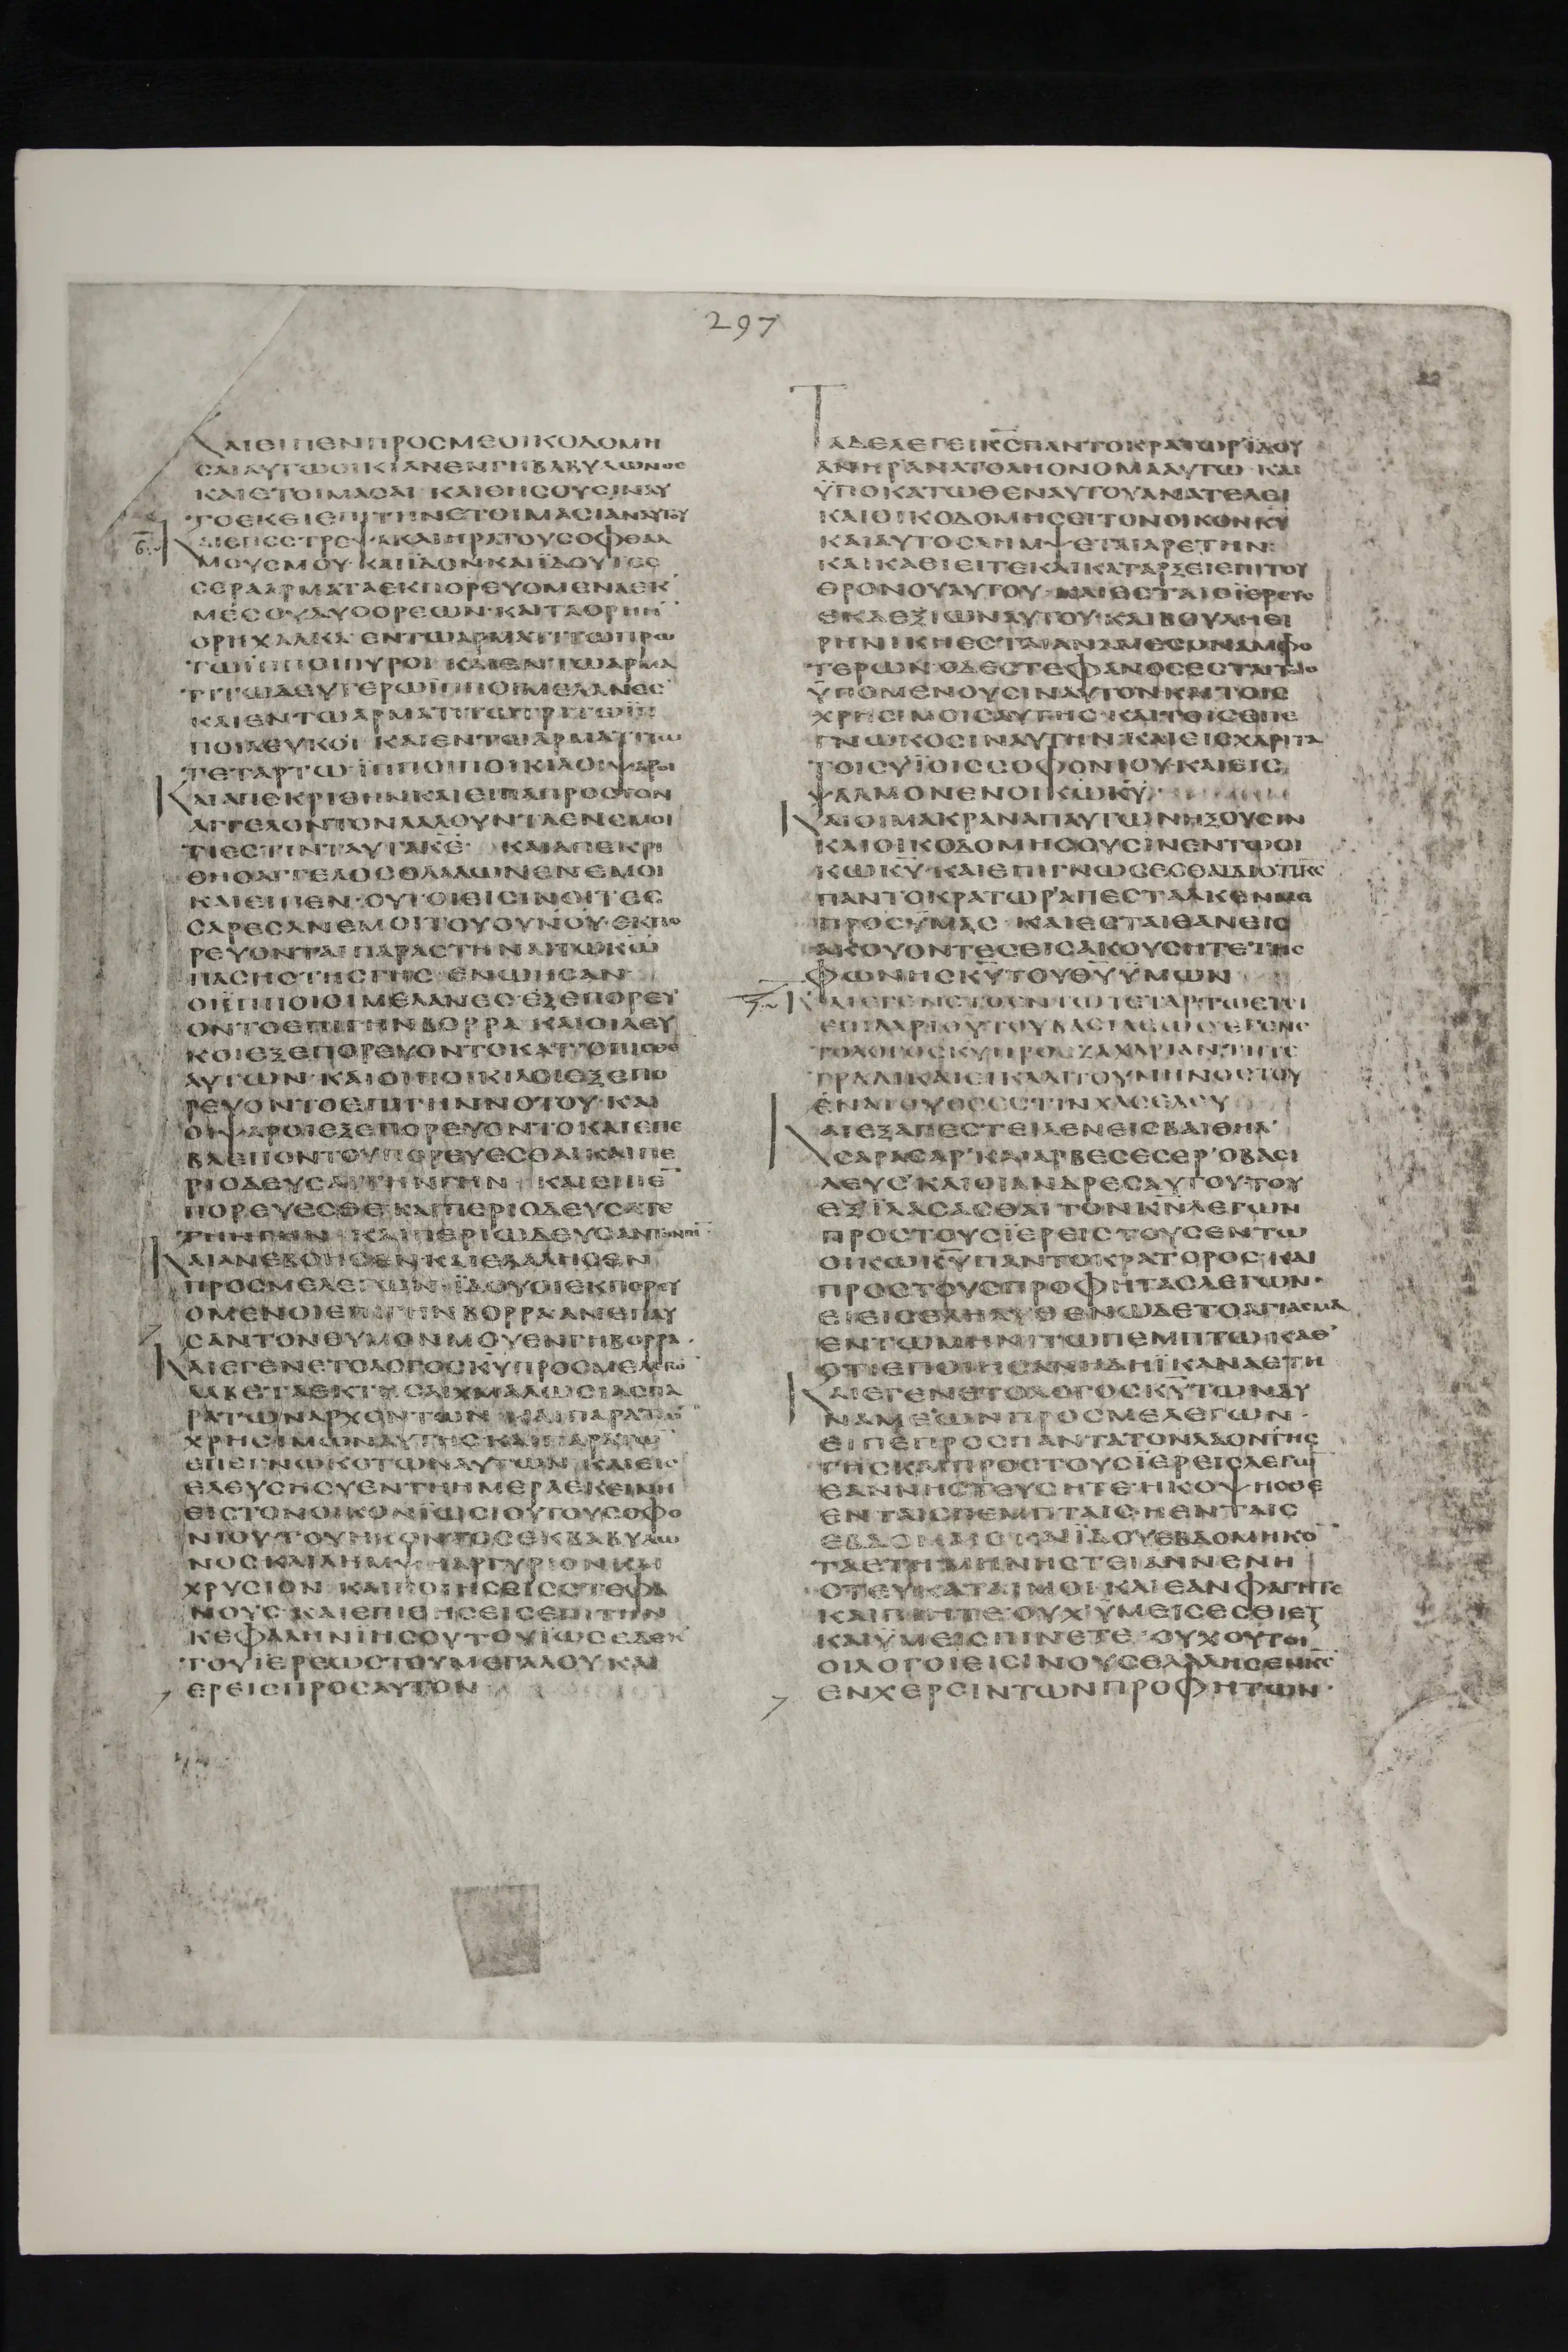 297
22
ΚΑΙΕΙΠΕΝΠΡΟCΜΕΟΙΚΟΔΟΜΗ
CΑΙΑΥΤΩΟΙΚΙΑΝΕΝΓΗΒΑΒΥΛΩΝΟC
ΚΑΙΕΤΟΙΜΑCΑΙ ΚΑΙΘΗCΟΥCΙΝΑΥ
ΤΟΕΚΕΙΕΠΙΤΗΝΕΤΟΙΜΑCΙΑΝΑΥΤΟΥ
ΚΑΙΕΠΕCΤΡΕΨΑΚΑΙΗΡΑΤΟΥCΟΦΘΑΛ
ΜΟΥCΜΟΥ·ΚΑΙΪΔΟΝΚΑΙΪΔΟΥΤΕC
CΕΡΑΑΡΜΑΤΑΕΚΠΟΡΕΥΟΜΕΝΑΕΚ
ΜΕCΟΥΔΥΟΟΡΕΩΝ·ΚΑΙΤΑΟΡΗΗ
ΟΡΗΧΑΛΚΑ ΕΝΤΩΑΡΜΑΤΙΤΩΠΡΩ
ΤΩΪΠΠΟΙΠΥΡΟΙ ΚΑΙΕΝΤΩΑΡΜΑ
ΤΙΤΩΔΕΥΤΕΡΩΪΠΠΟΙΜΕΛΑΝΕC
ΚΑΙΕΝΤΩΑΡΜΑΤΙΤΩΤΡΙΤΩΪΠ
ΠΟΙΛΕΥΚΟΙ ΚΑΙΕΝΤΩΑΡΜΑΤΙΤΩ
ΤΕΤΑΡΤΩ ΪΠΠΟΙΠΟΙΚΙΛΟΙΨΑΡΟΙ
ΚΑΙΑΠΕΚΡΙΘΗΝΚΑΙΕΙΠΑΠΡΟCΤΟΝ
ΑΓΓΕΛΟΝΤΟΝΛΑΛΟΥΝΤΑΕΝΕΜΟΙ
ΤΙΕCΤΙΝΤΑΥΤΑΚΕ ΚΑΙΑΠΕΚΡΙ
ΘΗΟΑΓΓΕΛΟCΟΛΑΛΩΝΕΝΕΜΟΙ
ΚΑΙΕΙΠΕΝ·ΟΥΤΟΙΕΙCΙΝΟΙΤΕC
CΑΡΕCΑΝΕΜΟΙΤΟΥΟΥΝΟΥ·ΕΚΠΟ
ΡΕΥΟΝΤΑΙΠΑΡΑCΤΗΝΑΙΤΩΚΩ
ΠΑCΗCΤΗCΓΗC ΕΝΩΗCΑΝ
ΟΙΪΠΠΟΙΟΙΜΕΛΑΝΕCΕΞΕΠΟΡΕΥ
ΟΝΤΟΕΠΙΓΗΝΒΟΡΡΑ ΚΑΙΟΙΛΕΥ
ΚΟΙΕΞΕΠΟΡΕΥΟΝΤΟΚΑΤΟΠΙCΘΕ
ΑΥΤΩΝ·ΚΑΙΟΙΠΟΙΚΙΛΟΙΕΞΕΠΟ
ΡΕΥΟΝΤΟΕΠΙΓΗΝΝΟΤΟΥ·ΚΑΙ
ΟΙΨΑΡΟΙΕΞΕΠΟΡΕΥΟΝΤΟΚΑΙΕΠΕ
ΒΛΕΠΟΝΤΟΥΠΟΡΕΥΕCΘΑΙΚΑΙΠΕ
ΡΙΟΔΕΥCΑΙΤΗΝΓΗΝ ΚΑΙΕΙΠΕ
ΠΟΡΕΥΕCΘΕ ΚΑΙΠΕΡΙΟΔΕΥCΑΤΕ
ΤΗΝΓΗΝ ΚΑΙΠΕΡΙΩΔΕΥCΑΝΤΗΝΓΗ
ΚΑΙΑΝΕΒΟΗCΕΝΚΑΙΕΛΑΛΗCΕΝ
ΠΡΟCΜΕΛΕΓΩΝ·ΪΔΟΥΟΙΕΚΠΟΡΕΥ
ΟΜΕΝΟΙΕΠΙΓΗΝΒΟΡΡΑΑΝΕΠΑΥ
CΑΝΤΟΝΘΥΜΟΝΜΟΥΕΝΓΗΒΟΡΡΑ·
ΚΑΙΕΓΕΝΕΤΟΛΟΓΟCΚΥΠΡΟCΜΕΛΕΓΩ
ΛΑΒΕΤΑΕΚΤΗCΑΙΧΜΑΛΩCΙΑCΠΑ
ΡΑΤΩΝΑΡΧΟΝΤΩΝ ΚΑΙΠΑΡΑΤΩ
ΧΡΗCΙΜΩΝΑΥΤΗCΚΑΙΠΑΡΑΤΩ
ΕΠΕΓΝΩΚΟΤΩΝΑΥΤΩΝ ΚΑΙΕΙC
ΕΛΕΥCΗCΥΕΝΤΗΗΜΕΡΑΕΚΕΙΝΗ
ΕΙCΤΟΝΟΙΚΟΝΪΩCΙΟΥΤΟΥCΟΦΟ
ΝΙΟΥ·ΤΟΥΗΚΟΝΤΟCΕΚΒΑΒΥΛΩ
ΝΟCΚΑΙΛΗΜΨΗΑΡΓΥΡΙΟΝΚΑΙ
ΧΡΥCΙΟΝ ΚΑΙΠΟΙΗCΕΙCCΤΕΦΑ
ΝΟΥC·ΚΑΙΕΠΙΘΗCΕΙCΕΠΙΤΗΝ
ΚΕΦΑΛΗΝΙΗCΟΥΤΟΥΪΩCΕΔΕΚ
ΤΟΥΪΕΡΕΩCΤΟΥΜΕΓΑΛΟΥΚΑΙ
ΕΡΕΙCΠΡΟCΑΥΤΟΝ
ΤΑΔΕΛΕΓΕΙΚCΠΑΝΤΟΚΡΑΤΩΡΪΔΟΥ
ΑΝΗΡΑΝΑΤΟΛΗΟΝΟΜΑΑΥΤΩ·ΚΑΙ
ΫΠΟΚΑΤΩΘΕΝΑΥΤΟΥΑΝΑΤΕΛΕΙ
ΚΑΙΟΙΚΟΔΟΜΗCΕΙΤΟΝΟΙΚΟΝΚΥ
ΚΑΙΑΥΤΟCΛΗΜΨΕΤΑΙΑΡΕΤΗΝ
ΚΑΙΚΑΘΙΕΙΤΕΚΑΙΚΑΤΑΡΞΕΙΕΠΙΤΟΥ
ΘΡΟΝΟΥΑΥΤΟΥ·ΚΑΙΕCΤΑΙΟΪΕΡΕΥC
ΕΚΔΕΞΙΩΝΑΥΤΟΥ·ΚΑΙΒΟΥΛΗΕΙ
ΡΗΝΙΚΗΕCΤΑΙΑΝΑΜΕCΟΝΑΜΦΟ
ΤΕΡΩΝ·ΟΔΕCΤΕΦΑΝΟCΕCΤΑΙΤΟΙC
ΫΠΟΜΕΝΟΥCΙΝΑΥΤΟΝΚΑΙΤΟΙC
ΧΡΗCΙΜΟΙCΑΥΤΗC·ΚΑΙΤΟΙCΕΠΕ
ΓΝΩΚΟCΙΝΑΥΤΗΝ·ΚΑΙΕΙCΧΑΡΙΤΑ
ΤΟΙCΥΪΟΙCCΟΦΟΝΙΟΥ·ΚΑΙΕΙC
ΨΑΛΜΟΝΕΝΟΙΚΩΚΥ
ΚΑΙΟΙΜΑΚΡΑΝΑΠΑΥΤΩΝΗΞΟΥCΙΝ
ΚΑΙΟΙΚΟΔΟΜΗCΟΥCΙΝΕΝΤΩΟΙ
ΚΩΚΥ·ΚΑΙΕΠΙΓΝΩCΕCΘΑΙΔΙΟΤΙΚC
ΠΑΝΤΟΚΡΑΤΩΡΑΠΕCΤΑΛΚΕΝΜΕ
ΠΡΟCΫΜΑC ΚΑΙΕCΤΑΙΕΑΝΕΙC
ΑΚΟΥΟΝΤΕCΕΙCΑΚΟΥCΗΤΕΤΗC
ΦΩΝΗCΚΥΤΟΥΘΥΫΜΩΝ
ΚΑΙΕΓΕΝΕΤΟΕΝΤΩΤΕΤΑΡΤΩΕΤΕΙ
ΕΠΙΔΑΡΙΟΥΤΟΥΒΑCΙΛΕΩCΕΓΕΝΕ
ΤΟΛΟΓΟCΚΥΠΡΟCΖΑΧΑΡΙΑΝΤΗΤΕ
ΤΡΑΔΙΚΑΙΕΙΚΑΔΙΤΟΥΜΗΝΟCΤΟΥ
ΕΝΑΤΟΥΟCΕCΤΙΝΧΑCΕΛΕΥ
ΚΑΙΕΞΑΠΕCΤΕΙΛΕΝΕΙCΒΑΙΘΗΛ
CΑΡΑCΑΡ'ΚΑΙΑΡΒΕCΕCΕΡ'ΟΒΑCΙ
ΛΕΥC'ΚΑΙΟΙΑΝΔΡΕCΑΥΤΟΥ·ΤΟΥ
ΕΞΪΛΑCΑCΘΑΙ ΤΟΝΚΝΛΕΓΩΝ
ΠΡΟCΤΟΥCΪΕΡΕΙCΤΟΥCΕΝΤΩ
ΟΙΚΩΚΥΠΑΝΤΟΚΡΑΤΟΡΟC·ΚΑΙ
ΠΡΟCΤΟΥCΠΡΟΦΗΤΑCΛΕΓΩΝ·
ΕΙCΕΛΗΛΥΘΕΝΩΔΕΤΟΑΓΙΑCΜΑ
ΕΝΤΩΜΗΝΙΤΩΠΕΜΠΤΩ·ΚΑΘ'
ΟΤΙΕΠΟΙΗCΑΝΗΔΗΪΚΑΝΑΕΤΗ
ΚΑΙΕΓΕΝΕΤΟΛΟΓΟCΚΥΤΩΝΔΥ
ΝΑΜΕΩΝΠΡΟCΜΕΛΕΓΩΝ·
ΕΙΠΕΠΡΟCΠΑΝΤΑΤΟΝΛΑΟΝΤΗC
ΓΗCΚΑΙΠΡΟCΤΟΥCΪΕΡΕΙCΛΕΓΩ
ΕΑΝΝΗCΤΕΥCΗΤΕΗΚΟΨΗCΘΕ
ΕΝΤΑΙCΠΕΜΠΤΑΙC·ΗΕΝΤΑΙC
ΕΒΔΟΜΑΙCΚΑΙΪΔΟΥΕΒΔΟΜΗΚΟ
ΤΑΕΤΗΜΗΝΗCΤΕΙΑΝΝΕΝΗ
CΤΕΥΚΑΤΑΙΜΟΙ·ΚΑΙΕΑΝΦΑΓΗΤΕ
ΚΑΙΠΙΗΤΕ·ΟΥΧΫΜΕΙCΕCΘΙΕΤ
ΚΑΙΫΜΕΙCΠΙΝΕΤΕ·ΟΥΧΟΥΤΟΙ
ΟΙΛΟΓΟΙΕΙCΙΝΟΥCΕΛΑΛΗCΕΝΚC
ΕΝΧΕΡCΙΝΤΩΝΠΡΟΦΗΤΩΝ·